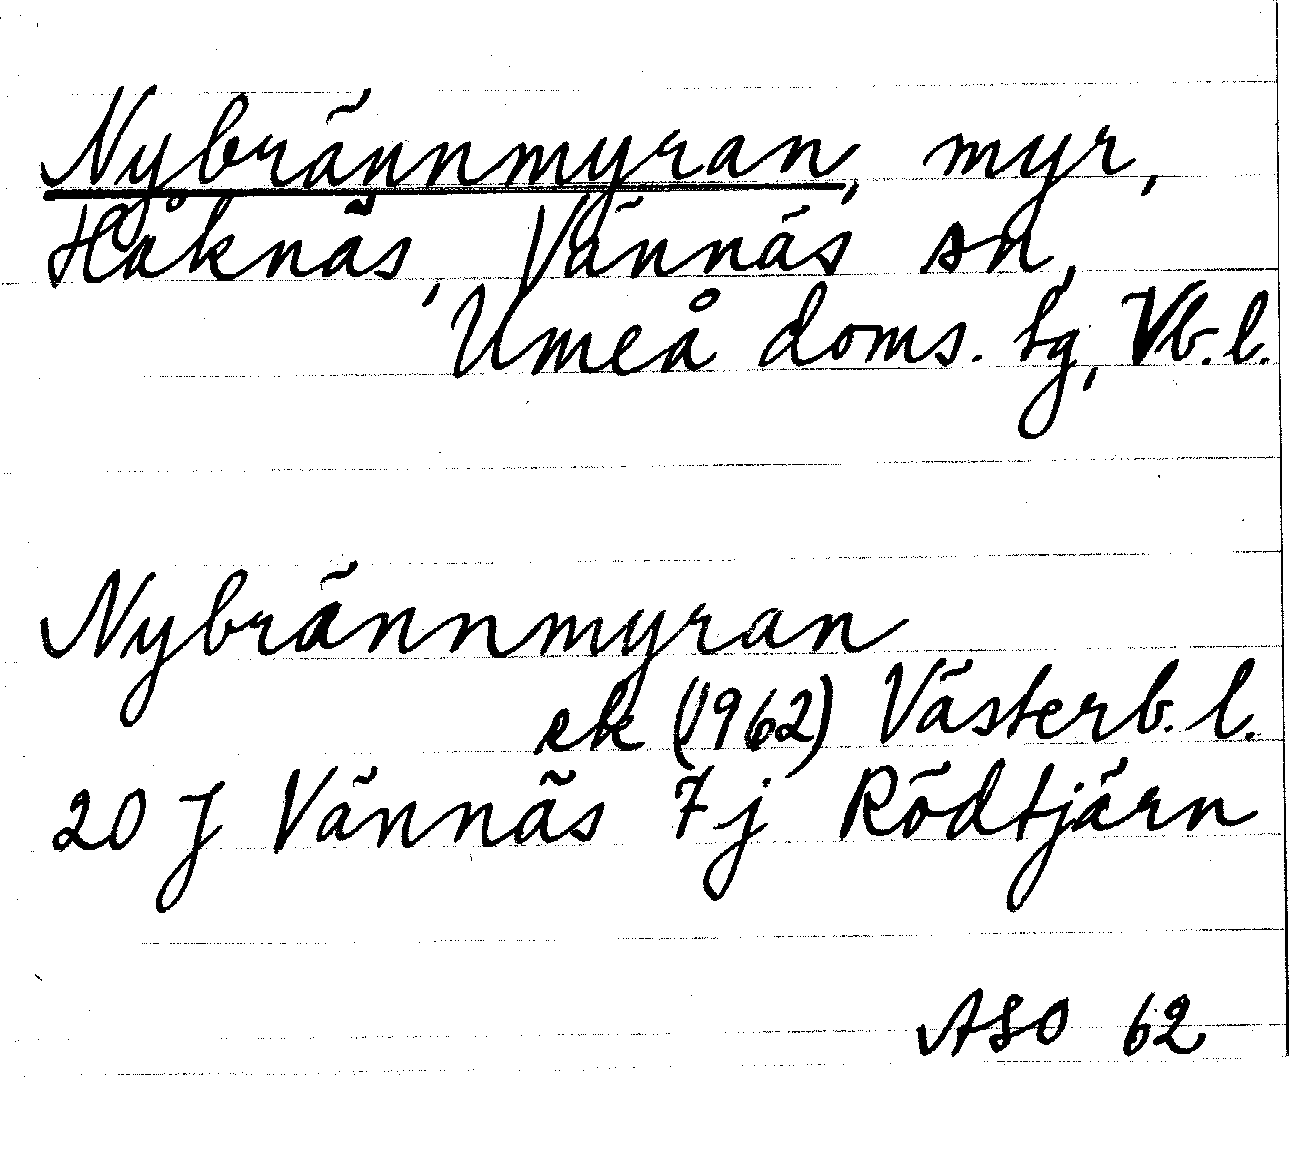 Nybrännmyran, myr,
Håknäs, Vännäs sn,
Umeå doms. tg, Vb. l.
Nybrännmyran
ek (1962) Västerb. l.
20 J Vännäs 7j Rödtjärn
ASO 62